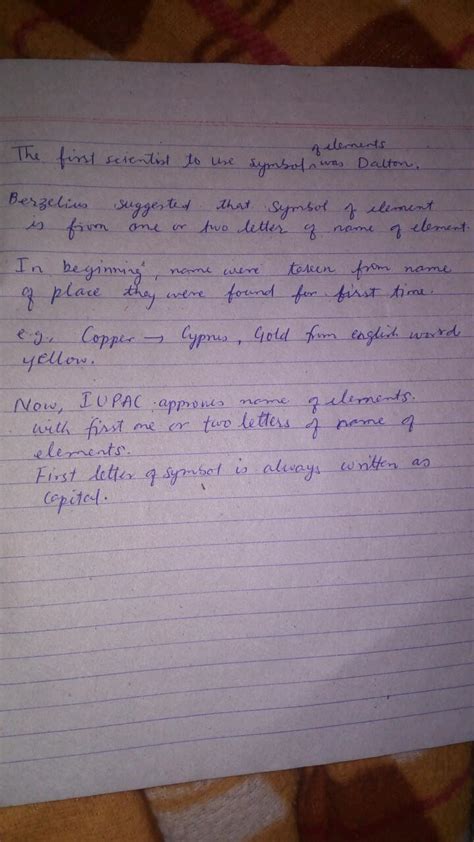 The first scientist to use symbol of elements was Dalton.
Berzelius suggested that symbol of element
is from one or two letter of name of element.
In beginning, name were taken from name
of place they were found for first time.
e.g, Copper → Cyprus, Gold from english word
yellow.
Now, IUPAC approves name of elements.
with first one or two letters of name of
elements.
First letter of symbol is always written as
capital.